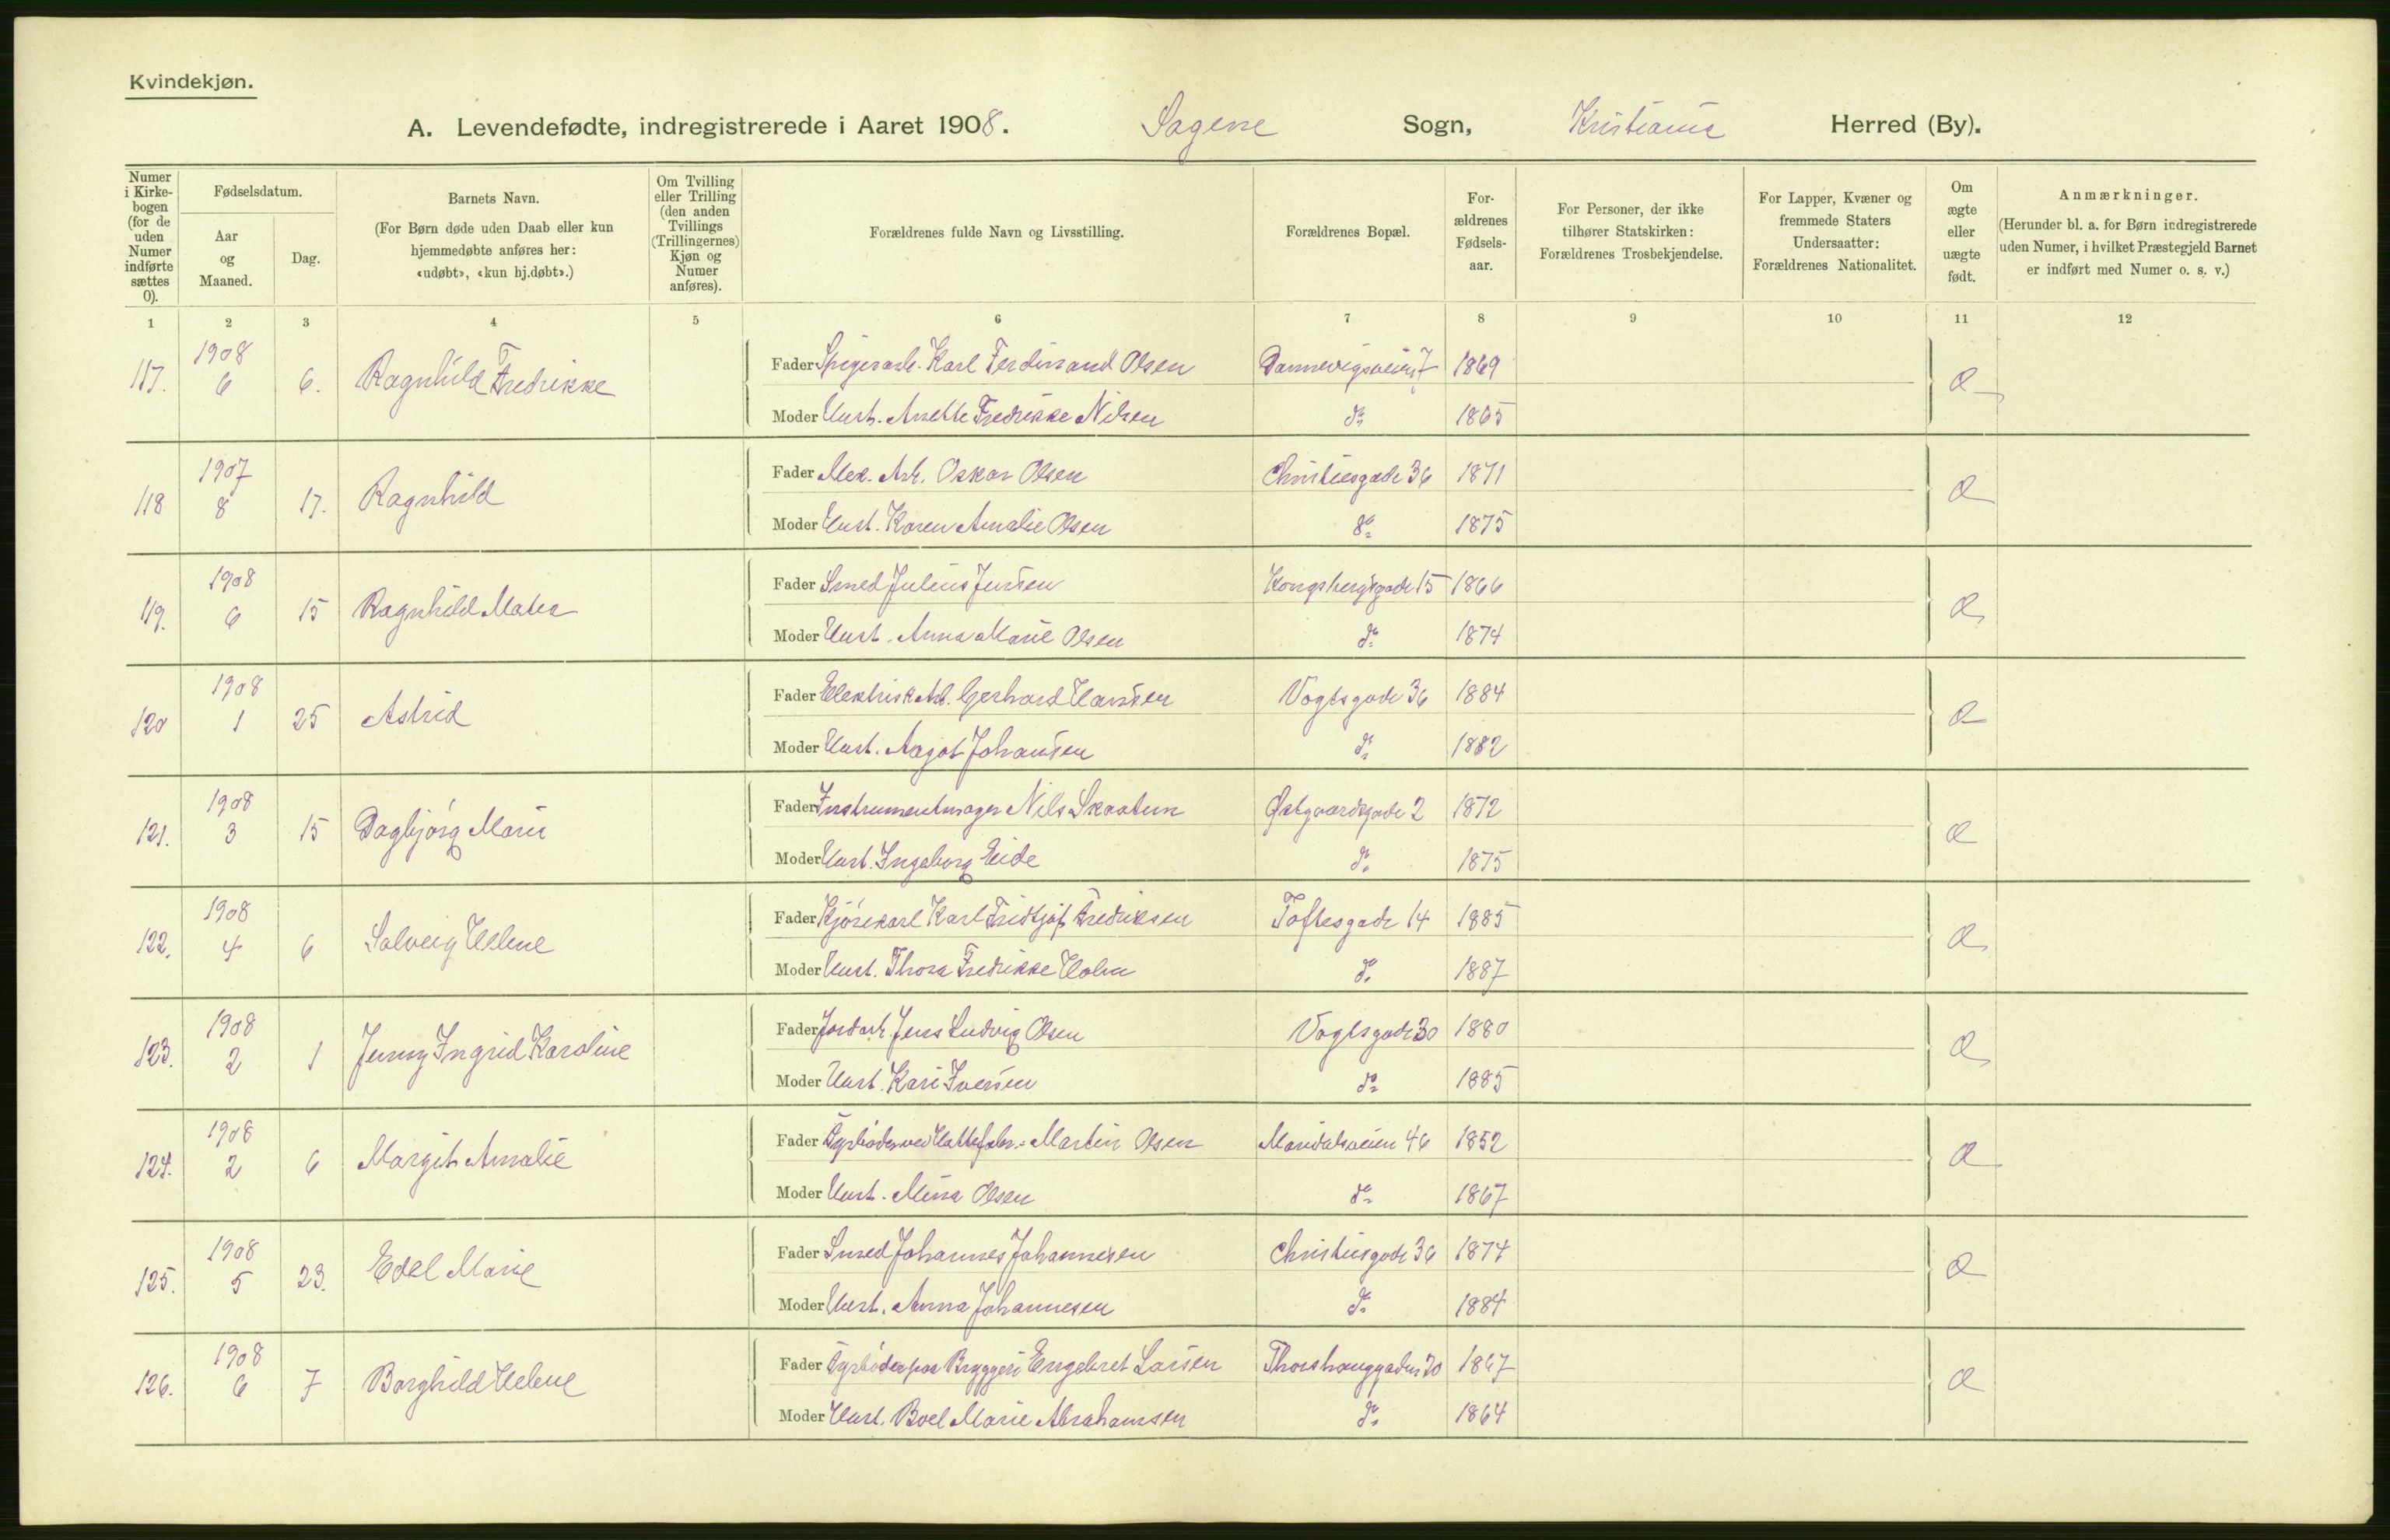 Kvindekjøn.
A. Levendefødte, indregistrerede i Aaret 1908. Sagene Sogn, Kristiania Herred (By).
Numer i Kirkebogen (for de uden Numer indførte sættes 0).
Fødselsdatum.
Aar og Maaned.
Dag.
Barnets Navn.
(For Børn døde uden Daab eller kun hjemmedøbte anføres her: «udøbt», «kun hj.døbt».)
Om Tvilling eller Trilling (den anden Tvillings (Trillingernes) Kjøn og Numer anføres).
Forældrenes fulde Navn og Livsstilling.
Forældrenes Bopæl.
Forældrenes Fødselsaar.
For Personer, der ikke tilhører Statskirken: Forældrenes Trosbekjendelse.
For Lapper, Kvæner og fremmede Staters Undersaatter: Forældrenes Nationalitet.
Om ægte eller uægte født.
Anmærkninger.
(Herunder bl. a. for Børn indregistrerede uden Numer, i hvilket Præstegjeld Barnet er indført med Numer o. s. v.)
1 2 3 4 5 6 7 8 9 10 11 12
117. 1908 6 6. Ragnhild Fredrikke Fader Spigerarb. Karl Ferdinand Olsen Dannevigsveien 7 1869 Æ
Moder Hust. Anette Fredrikke Nilsen do 1865
118 1907 8 17. Ragnhild Fader Mek. Arb. Oskar Olsen Christiesgade 36 1871 Æ
Moder Hust. Karen Amalie Olsen do 1875
119. 1908 6 15 Ragnhild Matea Fader Smed Julius Jensen Kongsbergsgade 15 1866 Æ
Moder Hust. Anna Marie Olsen do 1874
120 1908 1 25 Astrid Fader Elektrisk Arb. Gerhard Hansen Vogtsgade 36 1884 Æ
Moder Hust. Aagot Johansen do 1882
121. 1908 3 15 Dagbjørg Marie Fader Instrumentmager Nils Skaatun Østgaardsgade 2 1872 Æ
Moder Hust. Ingeborg Eide do 1875
122. 1908 4 6 Solveig Helene Fader Kjørekarl Karl Fridtjof Fredriksen Toftesgade 14 1885 Æ
Moder Hust. Thora Fredrikke Holm do 1887
123. 1908 2 1 Jenny Ingrid Karoline Fader Jordarb. Jens Ludvig Olsen Vogtsgade 30 1880 Æ
Moder Hust. Kari Iversen do 1885
124. 1908 2 6 Margit Amalie Fader Fyrbøder ved Hattefabr. Martin Olsen Maridalsveien 46 1852 Æ
Moder Hust. Mina Olsen do 1867
125. 1908 5 23. Edel Marie Fader Smed Johannes Johannesen Christiesgade 36 1874 Æ
Moder Hust. Anna Johannesen do 1884
126. 1908 6 7 Borghild Helene Fader Fyrbøder paa Bryggeri Engebret Larsen Thorshauggaden 20 1867 Æ
Moder Hust. Boel Marie Abrahamsen do 1864